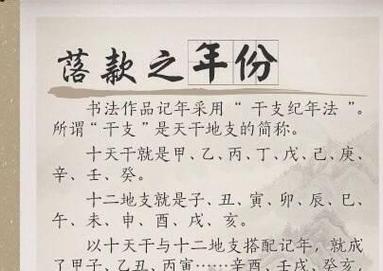 落款之年份
书法作品记年采用“干支纪年法”。
所谓“干支”是天干地支的简称。
十天干就是甲、乙、丙、丁、戊、己、庚、
辛、壬、癸。
十二地支就是子、丑、寅、卯、辰、巳、
午、未、申、酉、戌、亥。
以十天干与十二地支搭配记年，就成
了甲子、乙丑、丙寅……辛酉、壬戌、癸亥，